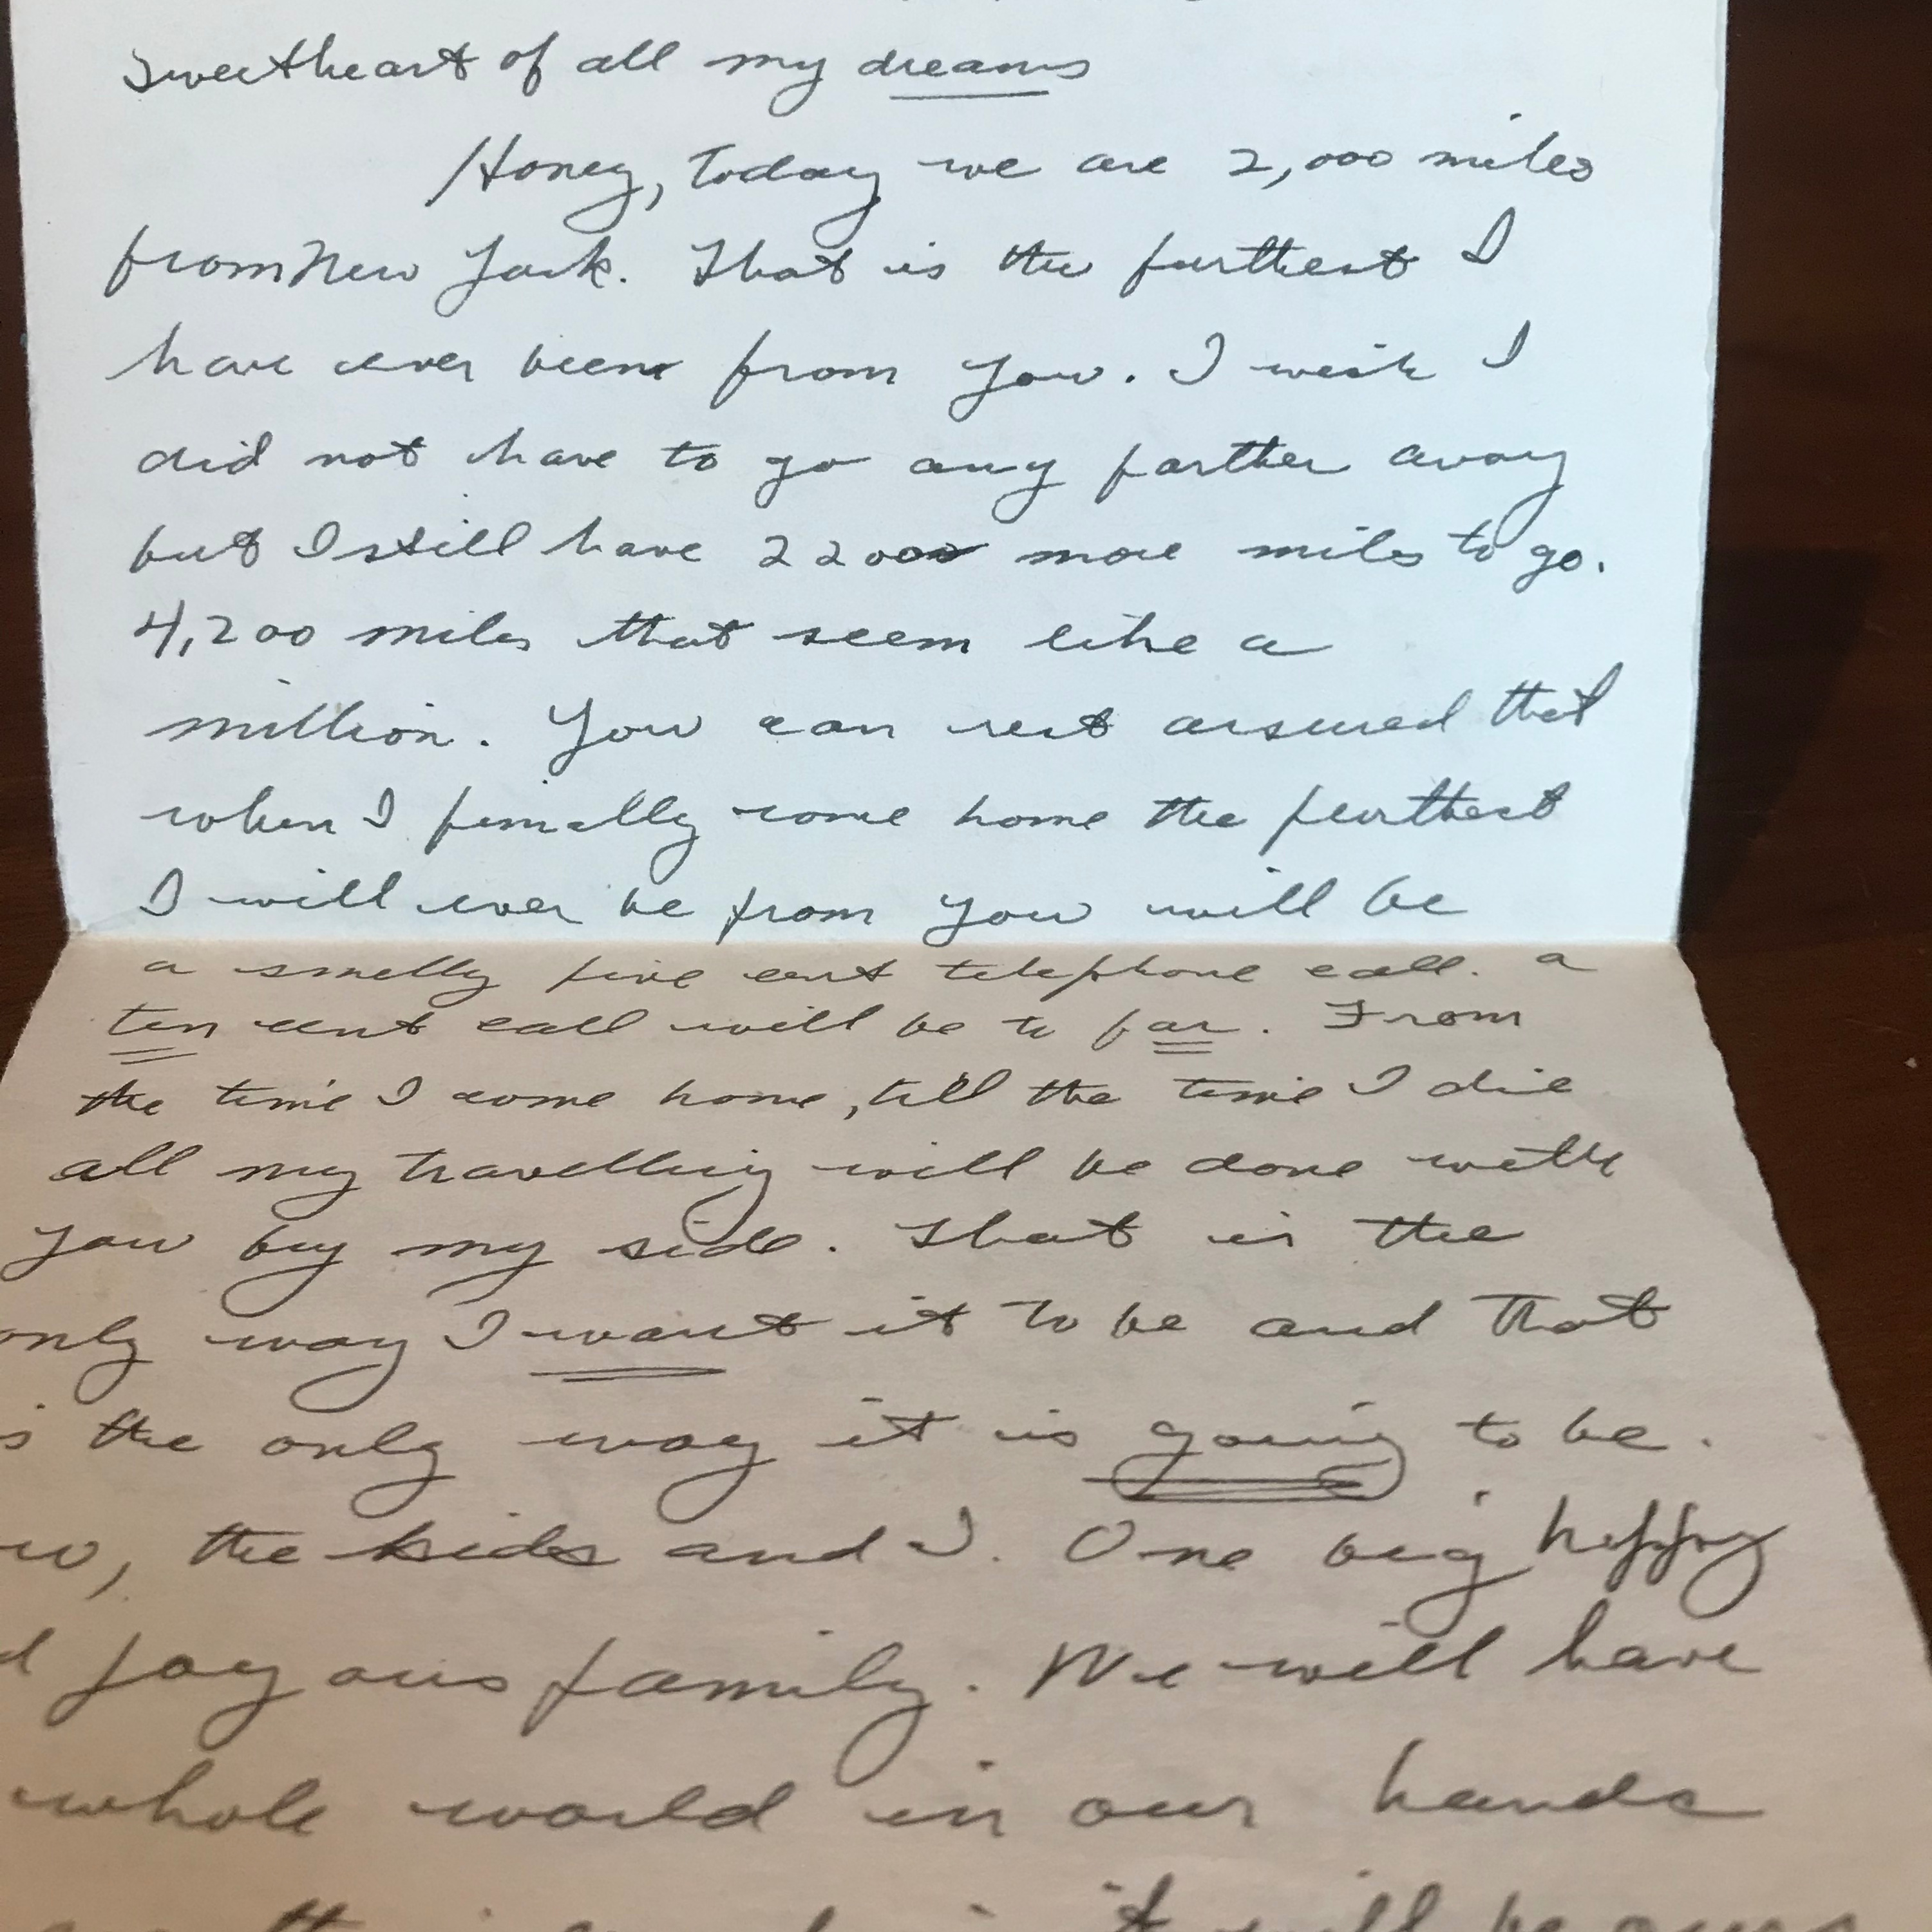 sweetheart of all my dreams
Honey, Today we are 2,000 miles
from New York. That is the furthest I
have ever been from you. I wish I
did not have to go any farther away
but I still have 2200 more miles to go.
4,200 miles that seem like a
million. You can rest assured that
when I finally come home the furthest
I will ever be from you will be
a smelly five cent telephone call. a
ten cent call will be to far. From
the time I come home, till the time I die
all my travelling will be done with
you by my side. That is the
only way I want it to be and that
is the only way it is going to be.
, the kids and I. One big happy
joyous family. We will have
whole world in our hands
it will be ours